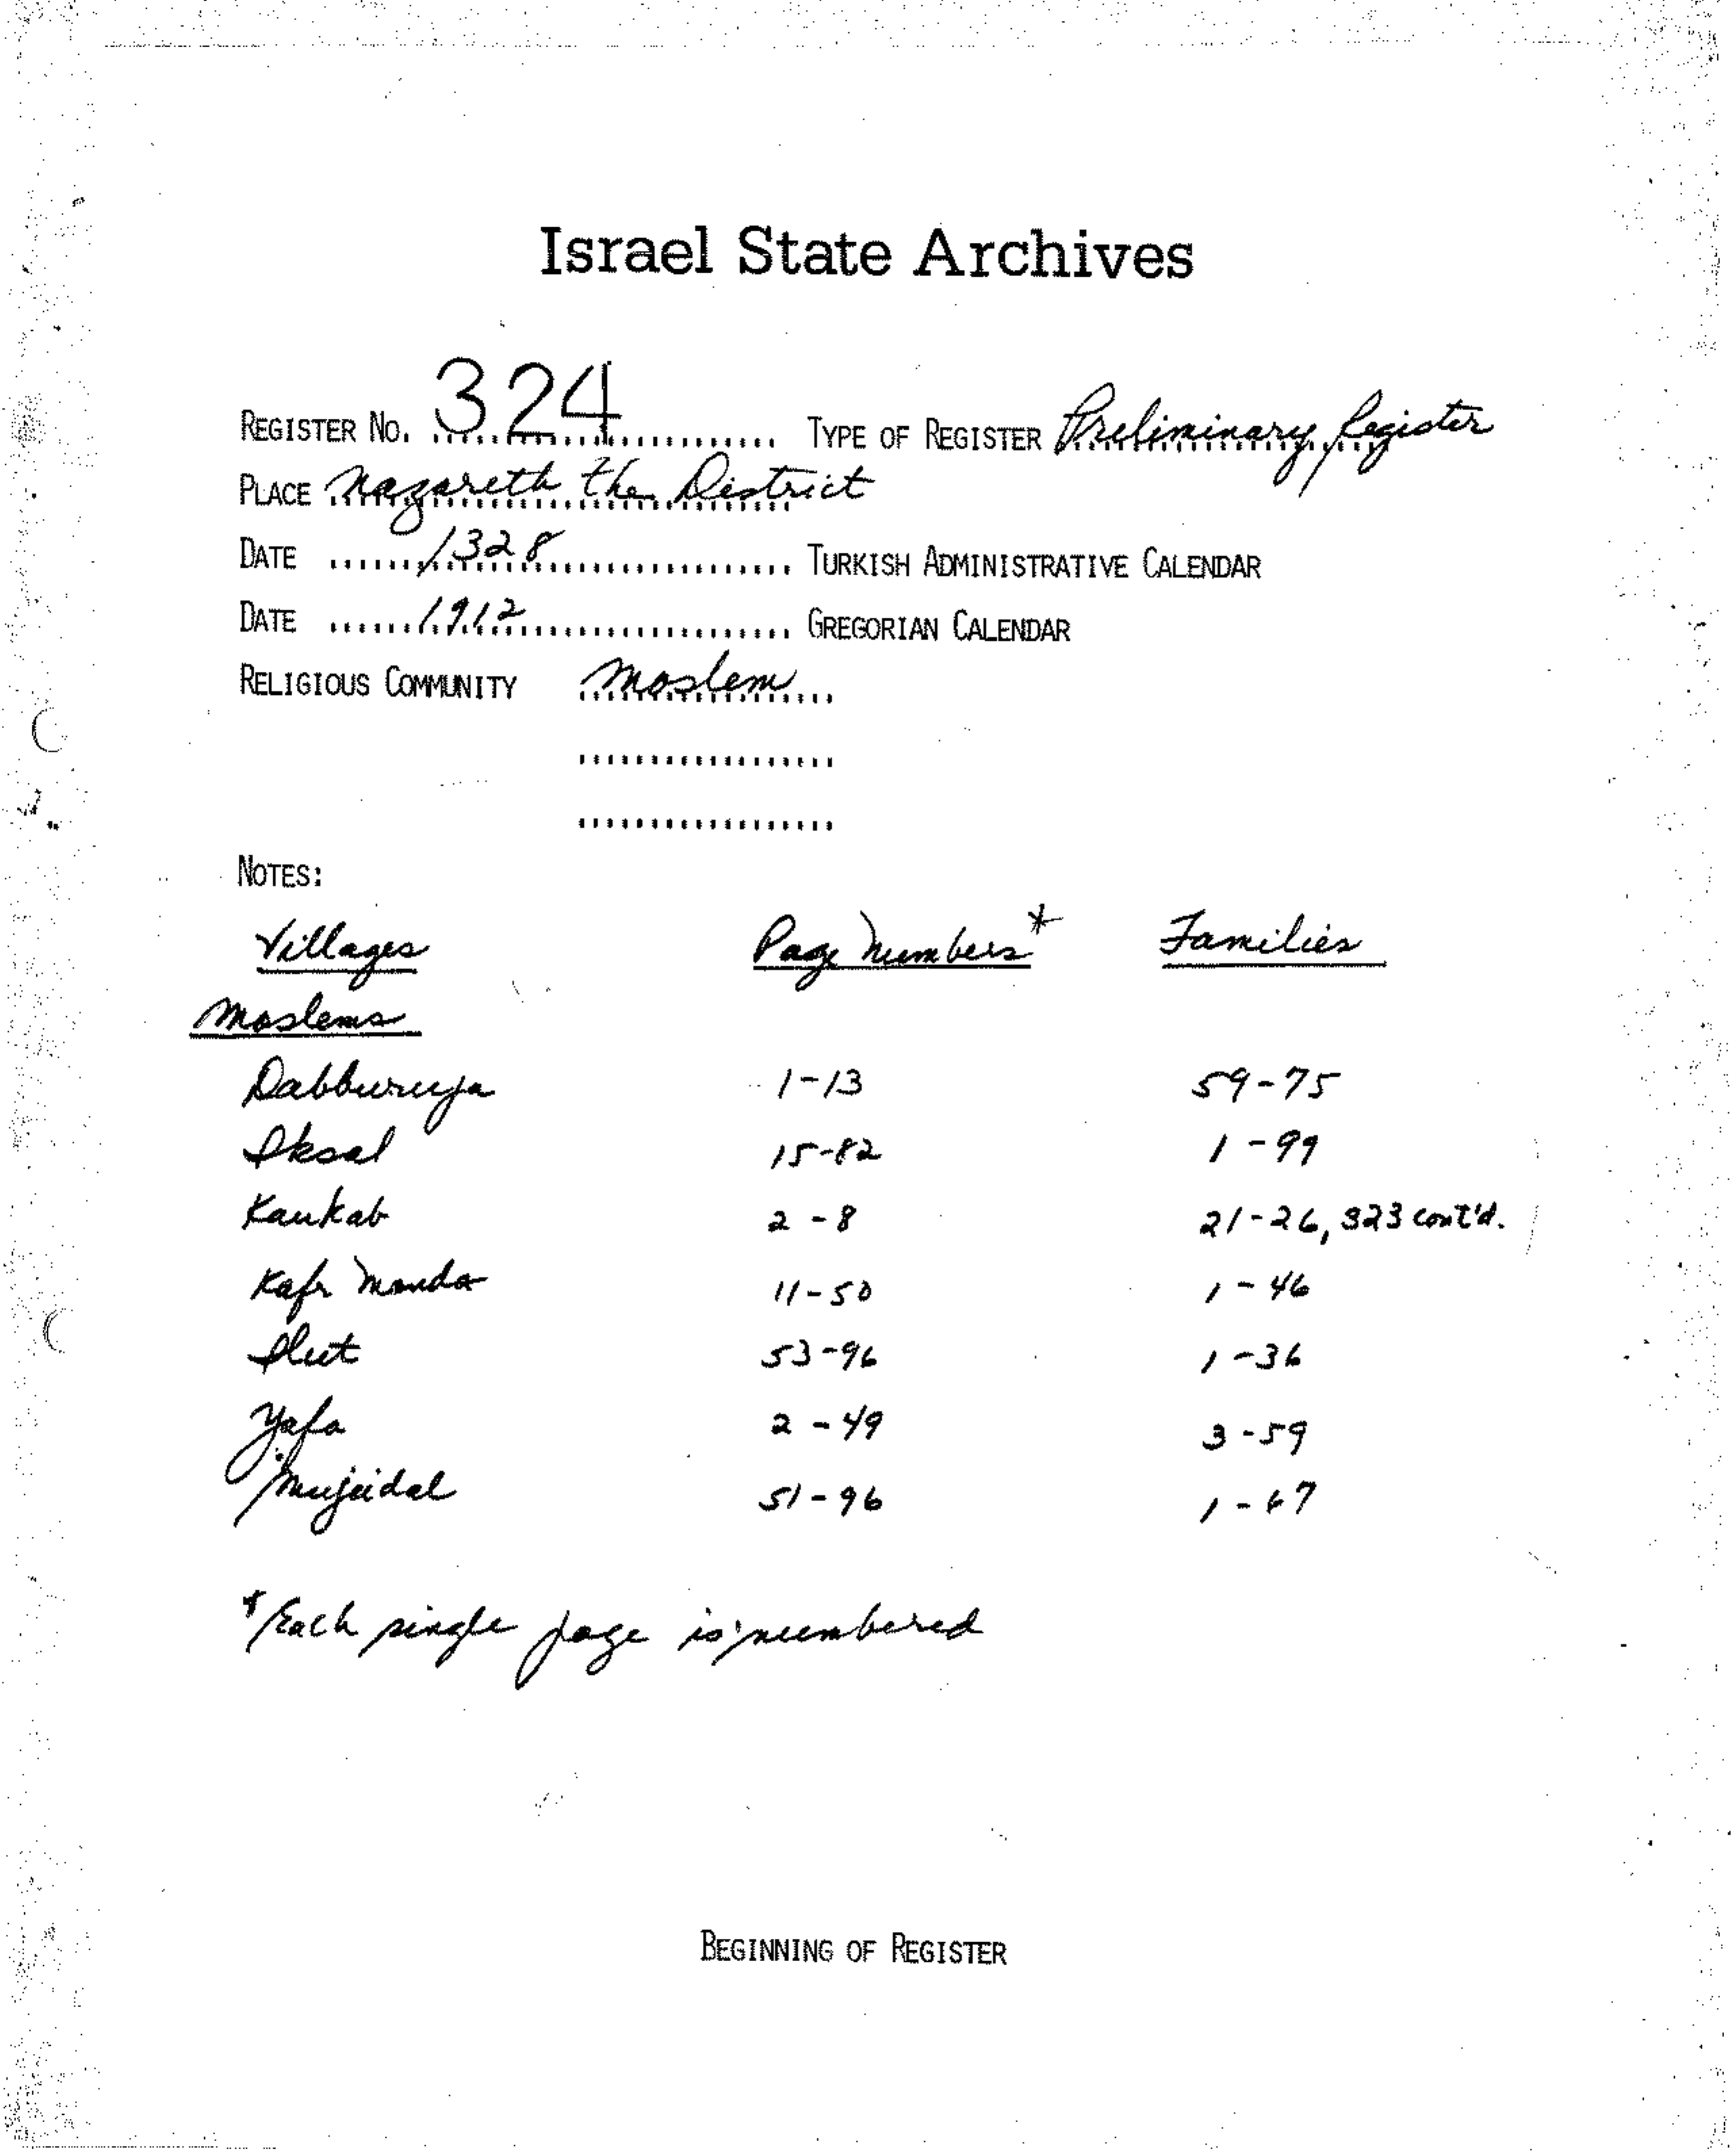 Israel State Archives
REGISTER NO. 324 TYPE OF REGISTER Preliminary Register
PLACE Nazareth the District
DATE 1328 TURKISH ADMINISTRATIVE CALENDAR
DATE 1912 GREGORIAN CALENDAR
RELIGIOUS COMMUNITY Moslem
NOTES:
Villages Page Numbers* Families
Moslems
Dabburuya 1-13 59-75
Iksal 15-82 1-99
Kaukab 2-8 21-26, 323 cont'd.
Kafr Manda 11-50 1-46
Ilut 53-96 1-36
Yafa 2-49 3-59
Mujeidal 51-96 1-67
*Each single page is numbered
BEGINNING OF REGISTER